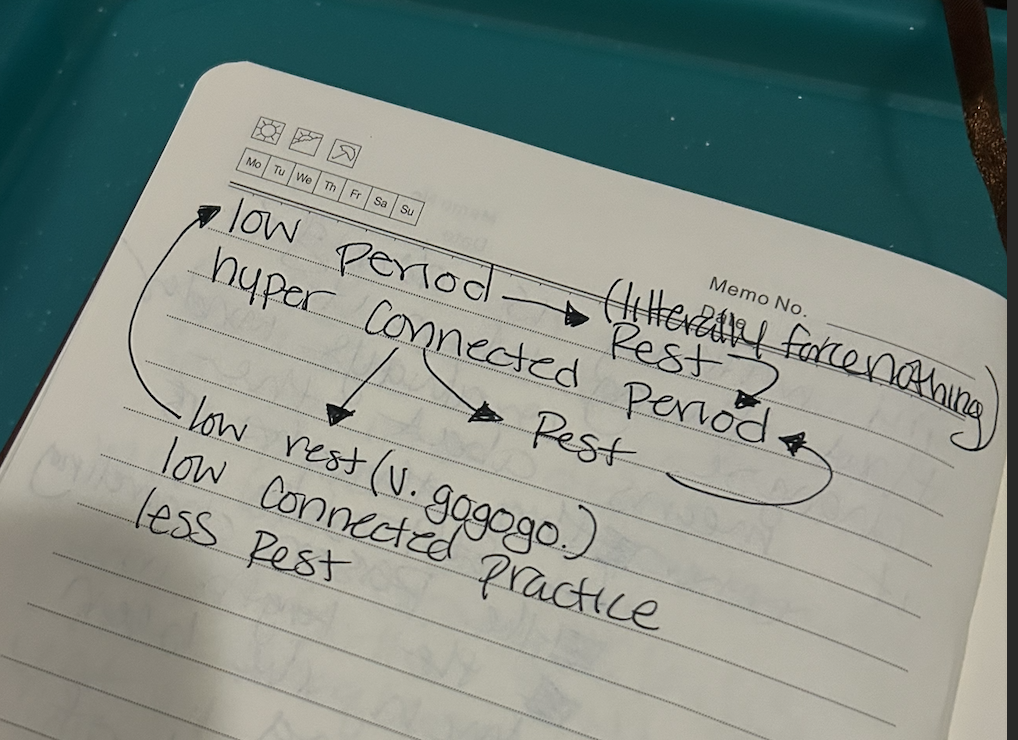 Mo Tu We Th Fr Sa Su
Memo No.
Date
low Period → (litterally force nothing)
Rest
hyper connected Period
Rest
low rest (v. gogogo.)
low connected Practice
less Rest